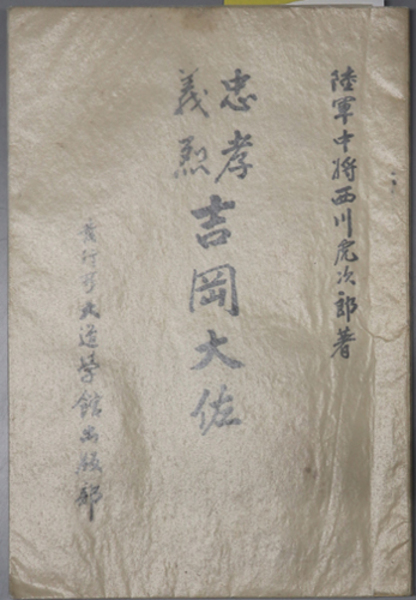 陸軍中将西川虎次郎著
忠孝義烈
吉岡大佐
發行所武道學館出版部